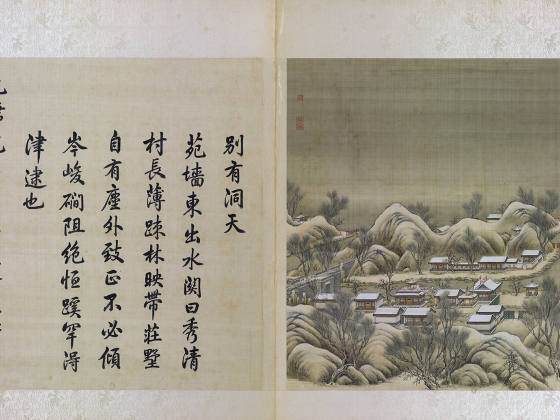 别有洞天
苑墙東出水関曰秀清
村長薄疎林映带莊墅
自有塵外致正不必傾
岑峻磵阻绝恒蹊罕得
津逮也